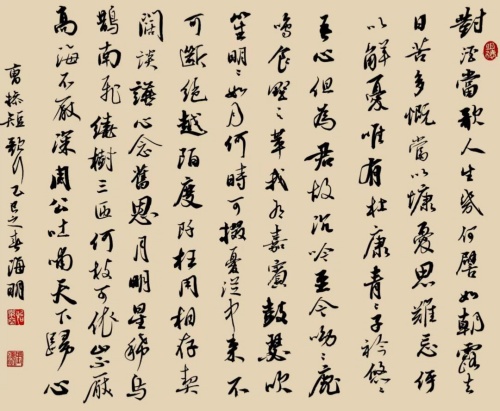 對酒當歌人生幾何譬如朝露去
日苦多慨當以慷憂思難忘何
以解憂唯有杜康青〻子衿悠〻
心但為君故沉吟至今呦〻鹿
鳴食野之苹我有嘉賓鼓瑟吹
笙明〻如月何時可掇憂從中來不
可斷絕越陌度阡枉用相存契
闊談讌心念舊恩月明星稀烏
鵲南飛繞樹三匝何枝可依山不厭
高海不厭深周公吐哺天下歸心
曹操短歌行乙巳之春海明